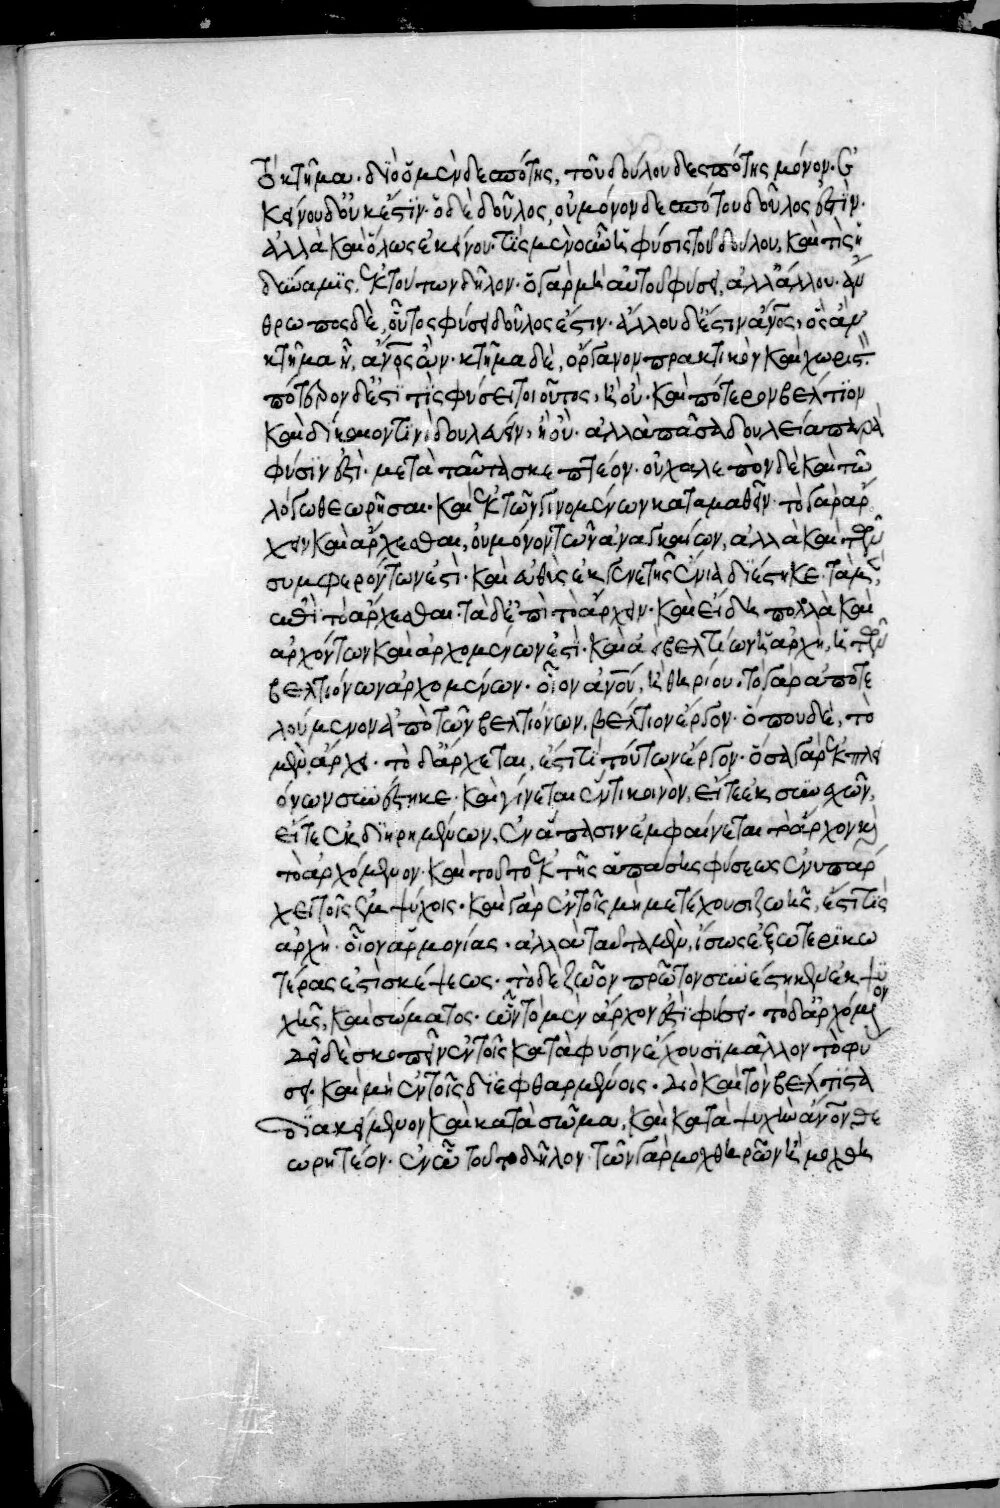 τὸ κτῆμα· διὸ ὁ μὲν δεσπότης, τοῦ δούλου δεσπότης μόνον· ἐ
κείνου δ' οὐκ ἔστιν· ὁ δὲ δοῦλος, οὐ μόνον δεσπότου δοῦλος ἐστὶν·
ἀλλὰ καὶ ὅλως ἐκείνου· τίς μὲν οὖν ἡ φύσις τοῦ δούλου, καὶ τίς ἡ
δύναμις, ἐκ τούτων δῆλον· ὁ γὰρ μὴ αὑτοῦ φύσει, ἀλλ' ἄλλου· ἄν
θρωπος δὲ, οὗτος φύσει δοῦλός ἐστιν· ἄλλου δ' ἔστιν ἄνος, ὃς ἂν
κτῆμα ᾖ, ἄνος ὤν· κτῆμα δὲ, ὄργανον πρακτικὸν καὶ χωριστ
πότερον δ' ἔστί τις φύσει τοιοῦτος, ἢ οὐ· καὶ πότερον βέλτιον
καὶ δίκαιον τινὶ δουλεύειν, ἢ οὐ· ἀλλὰ πᾶσα δουλεία παρὰ
φύσιν ἐστὶ· μετὰ ταῦτα σκεπτέον· οὐ χαλεπὸν δὲ καὶ τῶ
λόγω θεωρῆσαι· καὶ ἐκ τῶν γινομένων καταμαθεῖν· τὸ γὰρ ἄρ
χειν καὶ ἄρχεσθαι, οὐ μόνον τῶν ἀναγκαίων, ἀλλὰ καὶ τῶν
συμφερόντων ἐστὶ· καὶ εὐθὺς ἐκ γενετῆς ἔνια διέστηκε· τὰ μὲν,
ἐπὶ τὸ ἄρχεσθαι· τὰ δ' ἐπὶ τὸ ἄρχειν· καὶ εἴδη πολλὰ καὶ
ἀρχόντων καὶ ἀρχομένων ἐστὶ· καὶ ἀεὶ βελτίων ἡ ἀρχὴ, ἡ τῶν
βελτιόνων ἀρχομένων· οἷον ἀνοῦ, ἢ θηρίου· τὸ γὰρ ἀποτε
λούμενον ἀπὸ τῶν βελτιόνων, βέλτιον ἔργον· ὅπου δὲ, τὸ
μὲν ἄρχει· τὸ δ' ἄρχεται, ἔστί τι τούτων ἔργον· ὅσα γὰρ ἐκ πλει
όνων συνέστηκε· καὶ γίνεται ἕν τι κοινὸν, εἴτε ἐκ συνεχῶν,
εἴτε ἐκ διηρημένων, ἐν ἅπασιν ἐμφαίνεται τὸ ἄρχον καὶ
τὸ ἀρχόμενον· καὶ τοῦτο ἐκ τῆς ἁπάσης φύσεως ἐνυπάρ
χει τοῖς ἐμψύχοις· καὶ γὰρ ἐν τοῖς μὴ μετέχουσι ζωῆς, ἔστί τις
ἀρχὴ· οἷον ἁρμονίας· ἀλλὰ ταῦτα μὲν, ἴσως ἐξωτερικω
τέρας ἐστὶ σκέψεως· τὸ δὲ ζῶον πρῶτον συνέστηκεν ἐκ ψυ
χῆς, καὶ σώματος· ὧν τὸ μὲν ἄρχον ἐστὶ φύσει· τὸ δ' ἀρχόμενον
δεῖ δὲ σκοπεῖν ἐν τοῖς κατὰ φύσιν ἔχουσι μᾶλλον τὸ φύ
σει· καὶ μὴ ἐν τοῖς διεφθαρμένοις· διὸ καὶ τὸν βέλτιστα
διακείμενον καὶ κατὰ σῶμα, καὶ κατὰ ψυχὴν ἄνον θε
ωρητέον· ἐν ὧ τοῦτο δῆλον· τῶν γὰρ μοχθηρῶν ἢ μοχθη